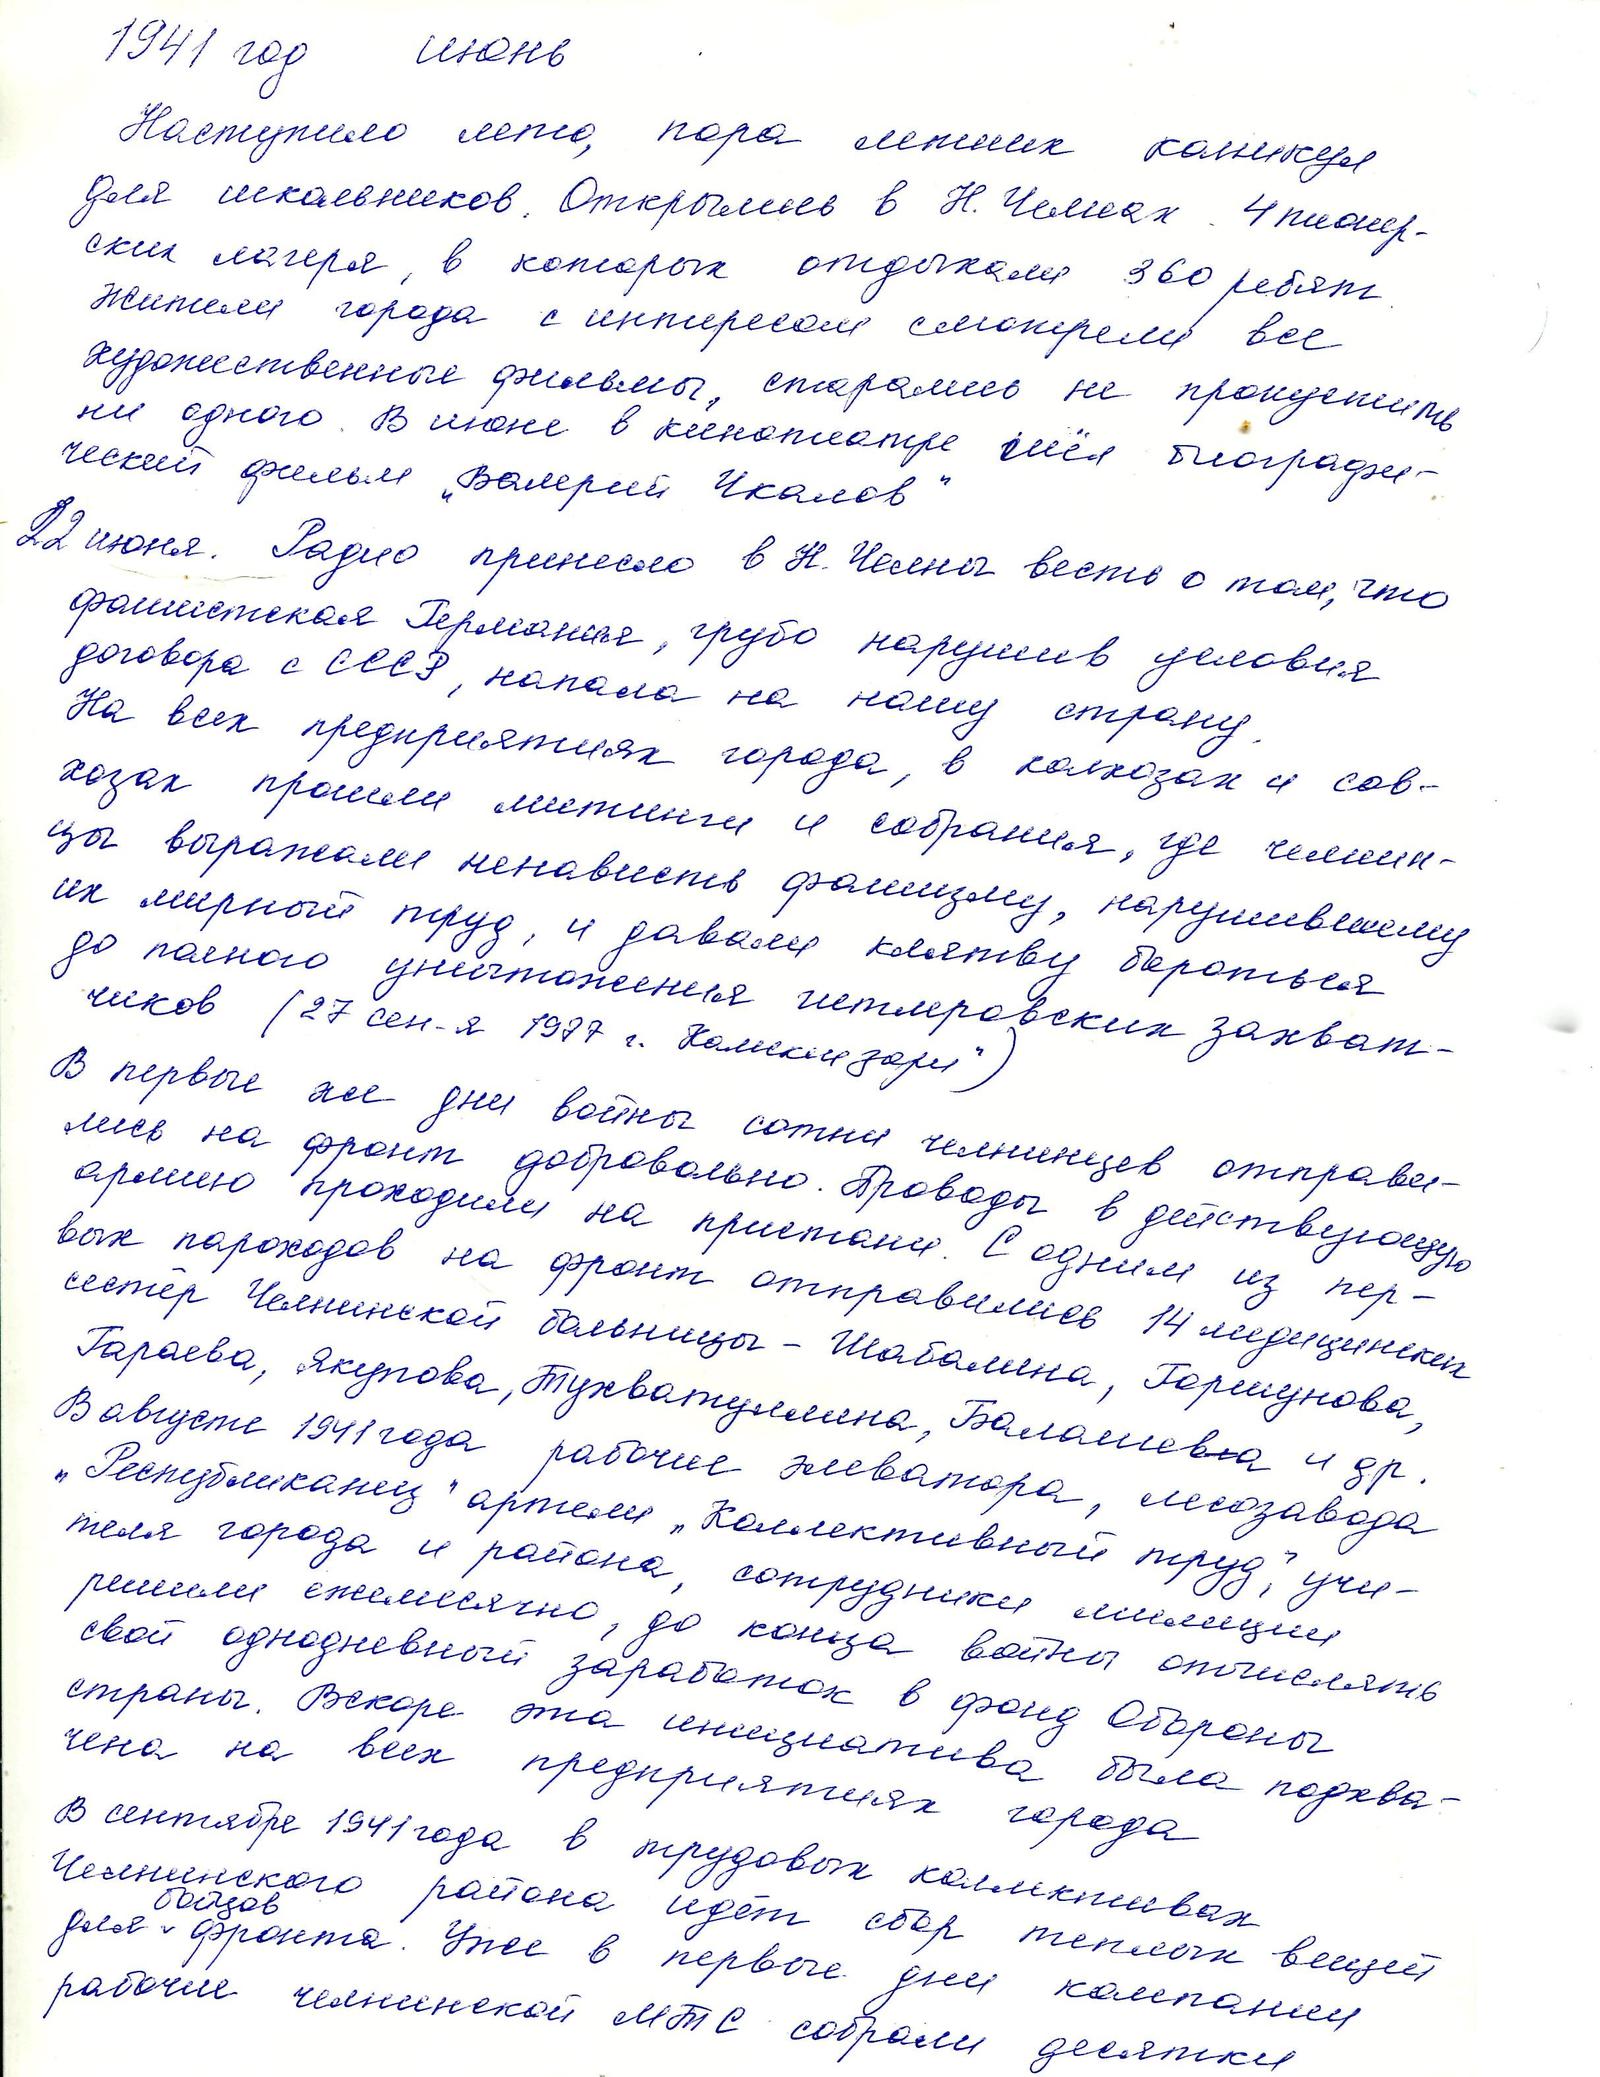 1941 год июнь
Наступило лето, пора летних каникул
для школьников. Открылись в Н. Челнах 4 пионер-
ских лагеря, в которых отдыхали 360 ребят.
Жители города с интересом смотрели все
художественные фильмы, старались не пропустить
ни одного. В июне в кинотеатре шёл биографи-
ческий фильм „Валерий Чкалов"
22 июня. Радио принесло в Н. Челны весть о том, что
фашистская Германия, грубо нарушив условия
договора с СССР, напала на нашу страну.
На всех предприятиях города, в колхозах и сов-
хозах прошли митинги и собрания, где челнин-
цы выражали ненависть фашизму, нарушившему
их мирный труд, и давали клятву бороться
до полного уничтожения гитлеровских захват-
чиков (27 сен-я 1977 г. Камски зори")
В первые же дни войны сотни челнинцев отправи-
лись на фронт добровольно. Проводы в действующую
армию проходили на пристани. С одним из пер-
вых пароходов на фронт отправились 14 медицинских
сестёр Челнинской больницы - Шабалина, Горшунова,
Гараева, Якупова, Тухватуллина, Балашевва и др.
В августе 1941 года рабочие элеватора, лесозавода
„Республиканец" артели „Коллективный труд", учи-
теля города и района, сотрудники милиции
решили ежемесячно, до конца войны отчислять
свой однодневный заработок в фонд Обороны
страны. Вскоре эта инициатива была подхва-
чена на всех предприятиях города
В сентябре 1941 года в трудовых коллективах
Челнинского района идёт сбор теплых вещей
бойцов
для фронта. Уже в первые дни кампании
рабочие челнинской МТС собрали десятки